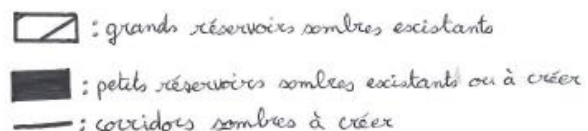 : grands réservoirs sombres existants
: petits réservoirs sombres existants ou à créer
: corridors sombres à créer